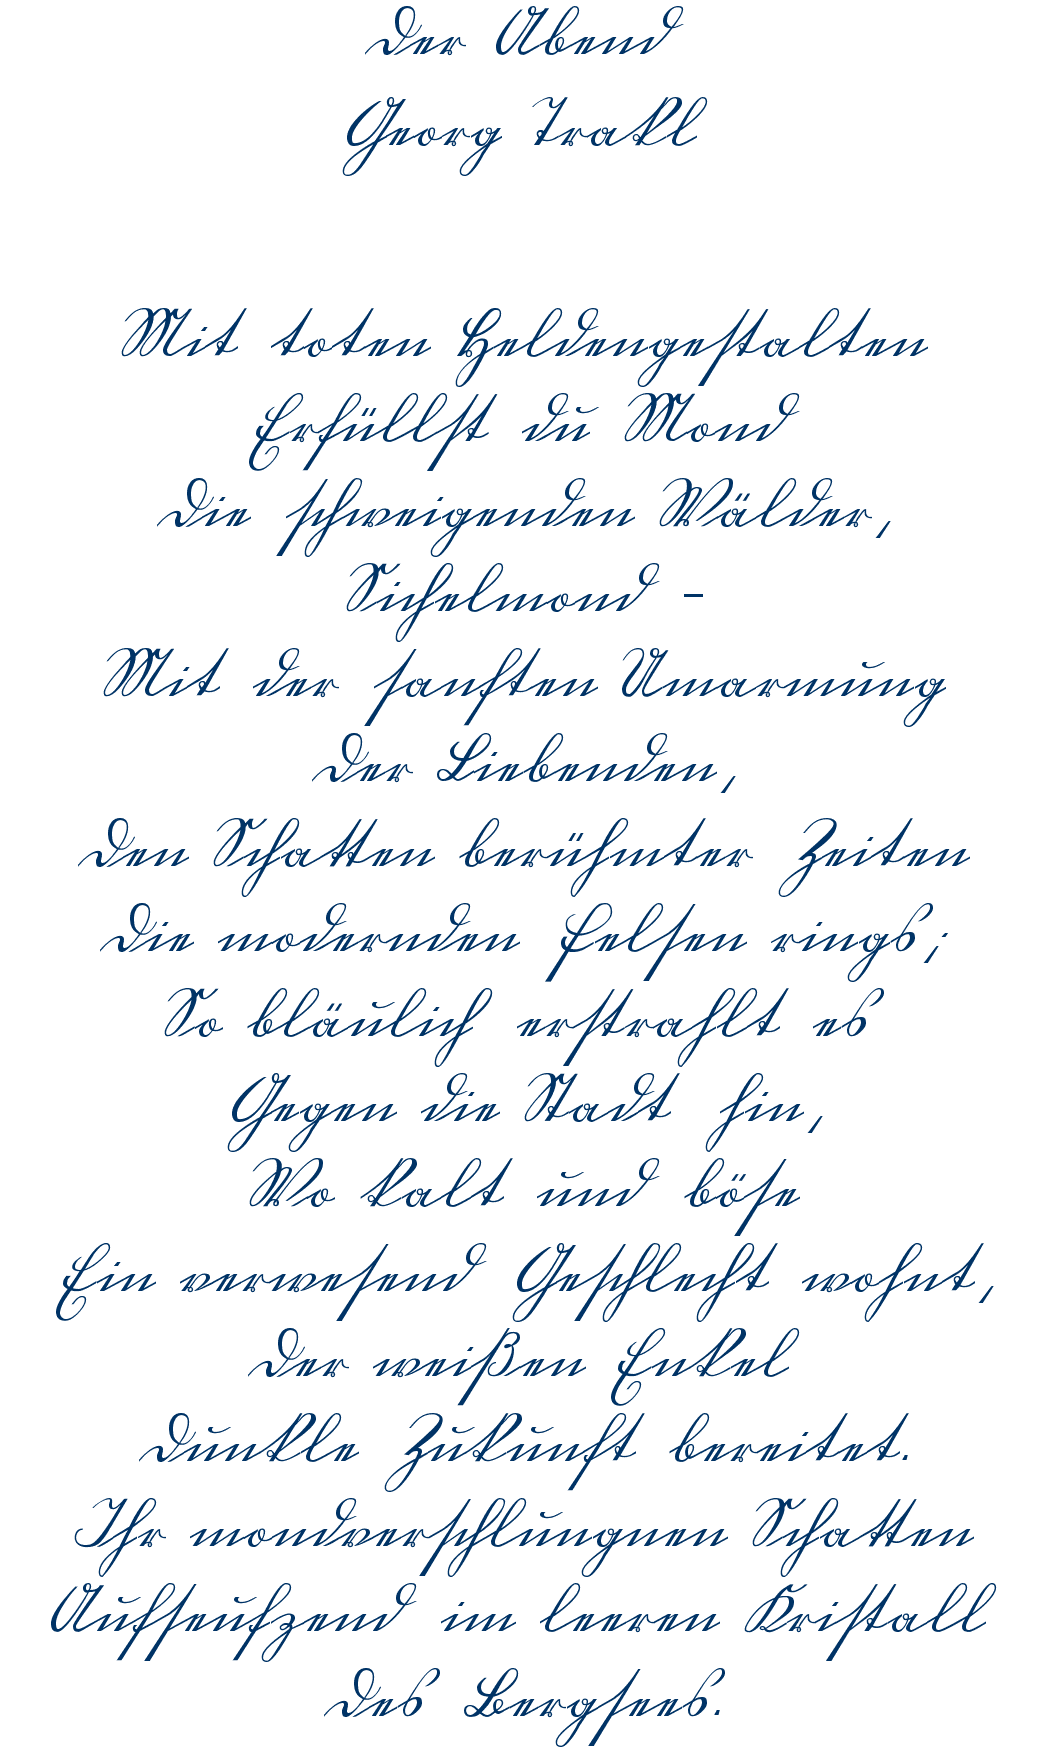 Der Abend
Georg Trakl
Mit toten Heldengestalten
Erfüllst du Mond
Die schweigenden Wälder,
Sichelmond -
Mit der sanften Umarmung
Der Liebenden,
Den Schatten berühmter Zeiten
Die modernden Felsen rings;
So bläulich erstrahlt es
Gegen die Stadt hin,
Wo kalt und böse
Ein verwesend Geschlecht wohnt,
Der weißen Enkel
Dunkle Zukunft bereitet.
Ihr mondverschlungnen Schatten
Aufseufzend im leeren Kristall
Des Bergsees.